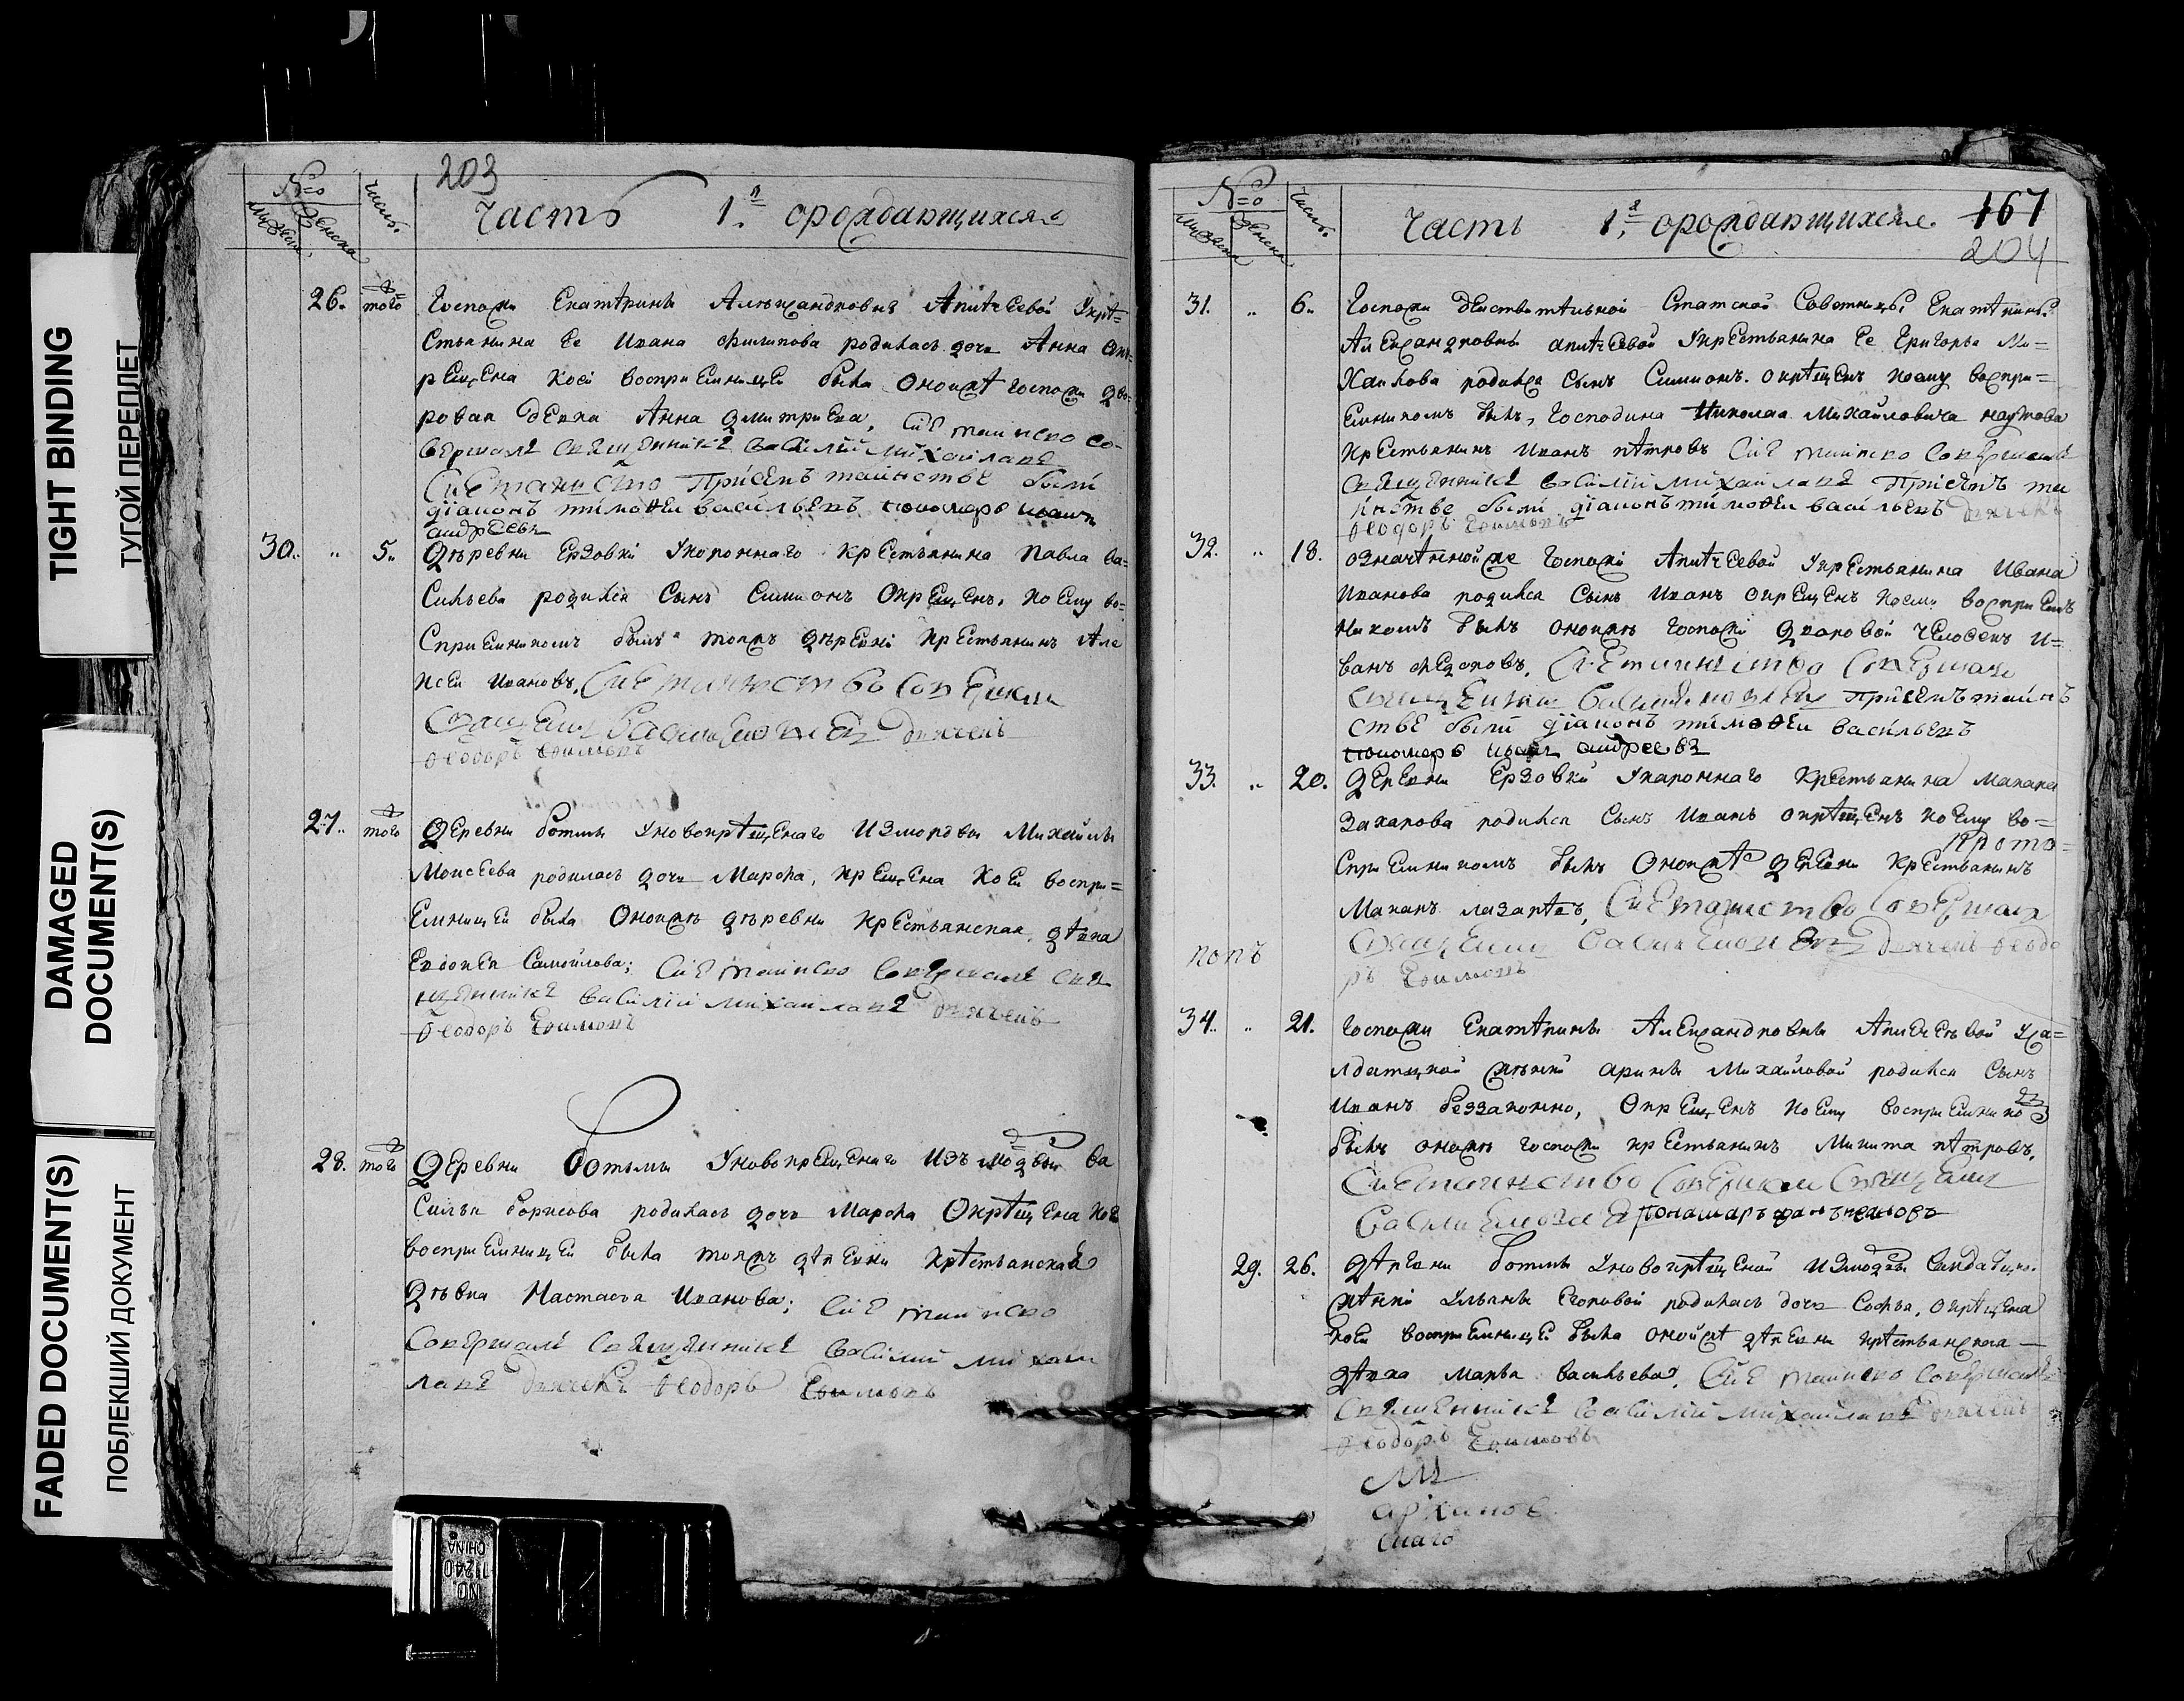 TIGHT BINDING
ТУГОЙ ПЕРЕПЛЕТ
DAMAGED
DOCUMENT(S)
FADED DOCUMENT(S)
ПОБЛЕКШИЙ ДОКУМЕНТ
203
№о числ.
мужеска женска
Часть 1.я ораждающихся
26. того Госпожи Екатѣрины Алѣксандровнѣ Апичеевой Укрѣ=
стьянина Ее Ивана Филипова родилась дочь Анна
рещена Коей восприемницей была Оноижѣ госпожи дво
ровая девка Анна дмитриева, Сиѣ таинство со
вершалъ священникъ василий михаилавъ
Сиѣ таинство При сѣмъ таинстве были
діаконъ тимоѳей васильевъ пономарь иванъ
андреевъ
30. " 5. Дѣревни Ерзовки Укороннаго крестьянина Павла ва=
сильева родился Сынъ Симионъ Окрещенъ, коему во=
сприемникомъ былъ тоижъ дѣревни крестьянинъ Але
ксеи Ивановъ, Сиѣ таинство совершал
Священ дьячекъ
ѳеодоръ Ефимовъ
27. того Деревни ботьмы Уновокрѣщенаго Измордвы Михайлы
Моисеева родилась дочь Марѳа, крещена Коей воспри=
емницей была Оноижъ дѣревни крестьянская дѣвка
Евдокея Самойлова; Сиѣ таинство совершалъ свя
щенникъ василий михаилавъ дьячекъ
ѳеодоръ Ефимовъ
28. того Деревни ботьмы Уновокрещенаго Изъ мордвы ва
силья борисова родилась дочь Марѳа Окрѣщена коей
восприемницей была тоижъ дѣревни крѣстьянская
дѣвка Настасья Иванова; Сиѣ таинство
Совершалъ Священникъ василий михаи
лавъ дьячекъ ѳеодоръ Ефимовъ
NO. 11240
CHINA
№о числ.
мужеска женска
Часть 1.я ораждающихся 167
204
31. " 6. Госпожи дѣиствитѣльной Статской Советницы Екатѣрины
Александровны апичеевой Укрестьянина Ее Григорья Ми=
хаилова родился Сынъ Симионъ. окрѣщенъ коему воспри=
емникомъ былъ, Господина Николая Михайловича наумова
крестьянинъ Иванъ пѣтровъ Сиѣ таинство Совершалъ
священникъ василий михаилавъ При сѣмъ та
инстве были діаконъ тимоѳеи васильевъ дьячекъ
ѳеодоръ Ефимовъ
32. " 18. означѣннойже Госпожи Апичеевой Укрестьянина Ивана
Иванова родился Сынъ Иванъ окрещенъ коему восприем
никомъ былъ оноижъ госпожи дворовой человекъ И=
ванъ ѳедоровъ. Сиѣ таинство Совершал
Священник Василий При сѣмъ таинъ
стве были діаконъ тимоѳеи васильевъ
пономарь иванъ андреевъ
33. " 20. Деревни Ерзовки Укароннаго Крестьянина Макара
Захарова родился Сынъ Иванъ окрѣщенъ коему во=
прото=
сприемникомъ былъ Оноижѣ деревни крестьянинъ
Макаръ лазарѣвъ, Сиѣ таинство Совершал
попъ Священ Васил дьячекъ ѳеодо
ръ Ефимовъ
34. " 21. Госпожи Екатѣрины Александровны Апичеевой Уса=
лдатской жѣнки арины Михаиловой родился Сынъ
Иванъ беззаконно, Окрещенъ коему восприемникомъ
былъ оноижъ госпожи крестьянинъ Микита пѣтровъ.
Сиѣ таинство Совершал Священ
Васили понамарь
29. 26. дѣревни ботьмы Уновокрѣщеной Измордвы салдацкой
жѣнки Ульяны Егоровой родилась дочь Софья, окрѣщена
коей восприемницей была онойжѣ дѣревни крѣстьянская
дѣвка марѳа васильева, Сиѣ таинство Совершалъ
Священникъ василий михаилавъ дьячекъ
ѳеодоръ Ефимовъ
архангѣ
скаго